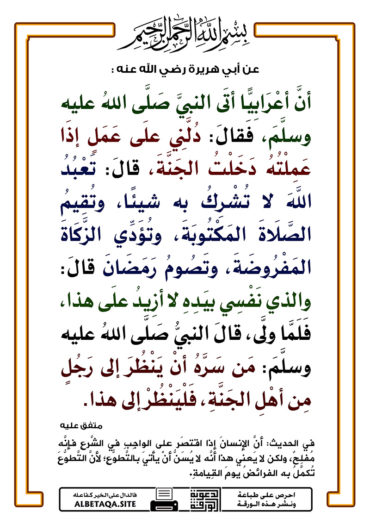 بِسْمِ اللَّهِ الرَّحْمَٰنِ الرَّحِيمِ
عن أبي هريرة رضي الله عنه :
أنَّ أعْرَابِيًّا أتَى النبيَّ صَلَّى اللهُ عليه
وسلَّمَ، فَقالَ: دُلَّنِي علَى عَمَلٍ إذَا
عَمِلْتُهُ دَخَلْتُ الجَنَّةَ، قالَ: تَعْبُدُ
اللَّهَ لا تُشْرِكُ به شيئًا، وتُقِيمُ
الصَّلَاةَ المَكْتُوبَةَ، وتُؤَدِّي الزَّكَاةَ
المَفْرُوضَةَ، وتَصُومُ رَمَضَانَ قالَ:
والذي نَفْسِي بيَدِهِ لا أزِيدُ علَى هذا،
فَلَمَّا ولَّى، قالَ النبيُّ صَلَّى اللهُ عليه
وسلَّمَ: مَن سَرَّهُ أنْ يَنْظُرَ إلى رَجُلٍ
مِن أهْلِ الجَنَّةِ، فَلْيَنْظُرْ إلى هذا.
متفق عليه
في الحديث: أنَّ الإنسانَ إذا اقتَصَر على الواجِبِ في الشَّرعِ فإنَّه
مُفلِحٌ، ولكن لا يَعني هذا أنَّه لا يُسَنُّ أنْ يأتيَ بالتَّطوُّعِ؛ لأنَّ التَّطوُّعَ
تُكمَلُ به الفرائضُ يومَ القِيامةِ.
احرص على طباعة
ونشر هذه الورقة
الدعوية
الورقة
فالدال على الخير كفاعله
ALBETAQA.SITE